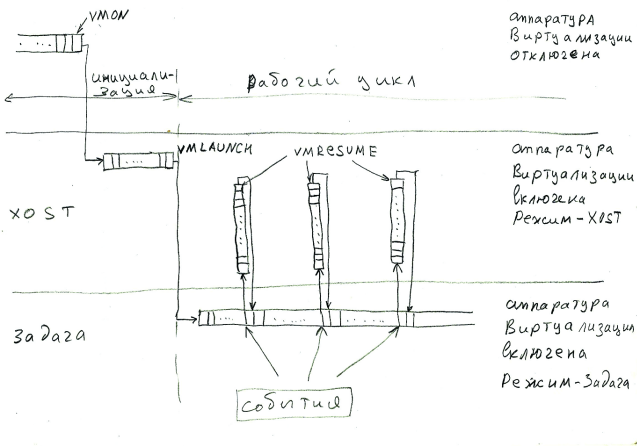 VMON
аппаратура
Виртуализации
отключена
инициали-
зация
Рабочий цикл
VMLAUNCH
VMRESUME
аппаратура
Виртуализации
включека
Режим-ХОST
ХОST
аппаратура
Виртуализации
включена
Режим-Задача
Задача
события